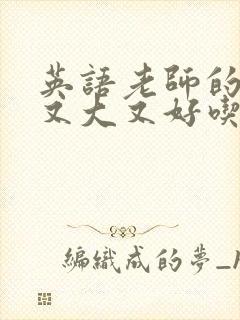 英語老師的
又大又好喫
編織成的夢_1